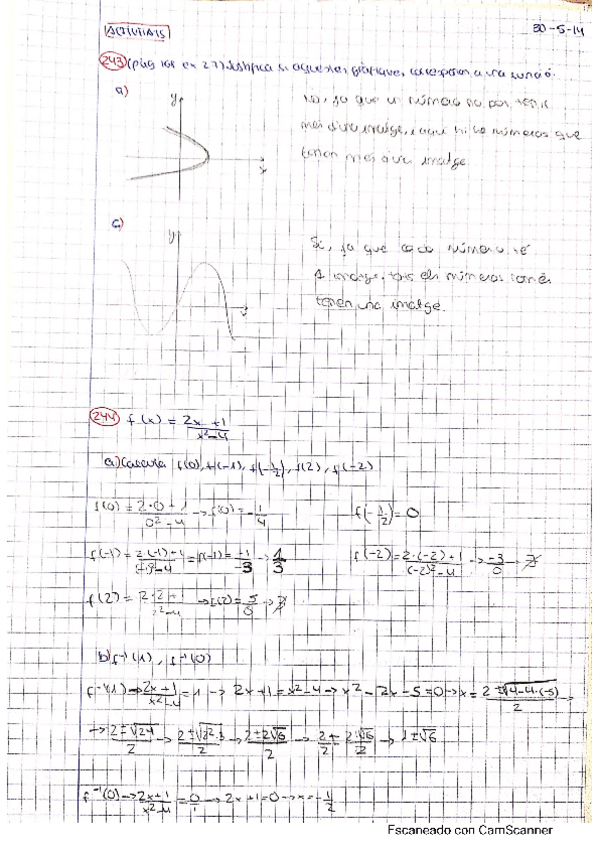 ACTIVITATS
30-5-14
243) (pàg 168 ex 27) Justifica si aquestes gràfiques corresponen a una funció.
a)
y
x
No, ja que un número no pot tenir
més d'una imatge, i aquí hi ha números que
tenen més d'una imatge.
c)
y
x
Sí, ja que cada número té
1 imatge, tots els números només
tenen una imatge.
244) f(x) = 2x+1/x²-4
a) Calcula f(0), f(-1), f(-1/2), f(2), f(-2)
f(0) = 2·0+1/0²-4 → f(0) = -1/4
f(-1/2) = 0
f(-1) = 2·(-1)+1/(-1)²-4 = f(-1) = -1/-3 → 1/3
f(-2) = 2·(-2)+1/(-2)²-4 → -3/0 → ∄
f(2) = 2·2+1/2²-4 → f(2) = 5/0 → ∄
b) f⁻¹(1), f⁻¹(0)
f⁻¹(1) → 2x+1/x²-4 = 1 → 2x+1 = x²-4 → x²-2x-5=0 → x = 2±√4-4·(-5)/2 →
→ 2±√24/2 → 2±√2²·3/2 → 2±2√6/2 → 2/2 ± 2√6/2 → 1±√6
f⁻¹(0) → 2x+1/x²-4 = 0/1 → 2x+1=0 → x = -1/2
Escaneado con CamScanner